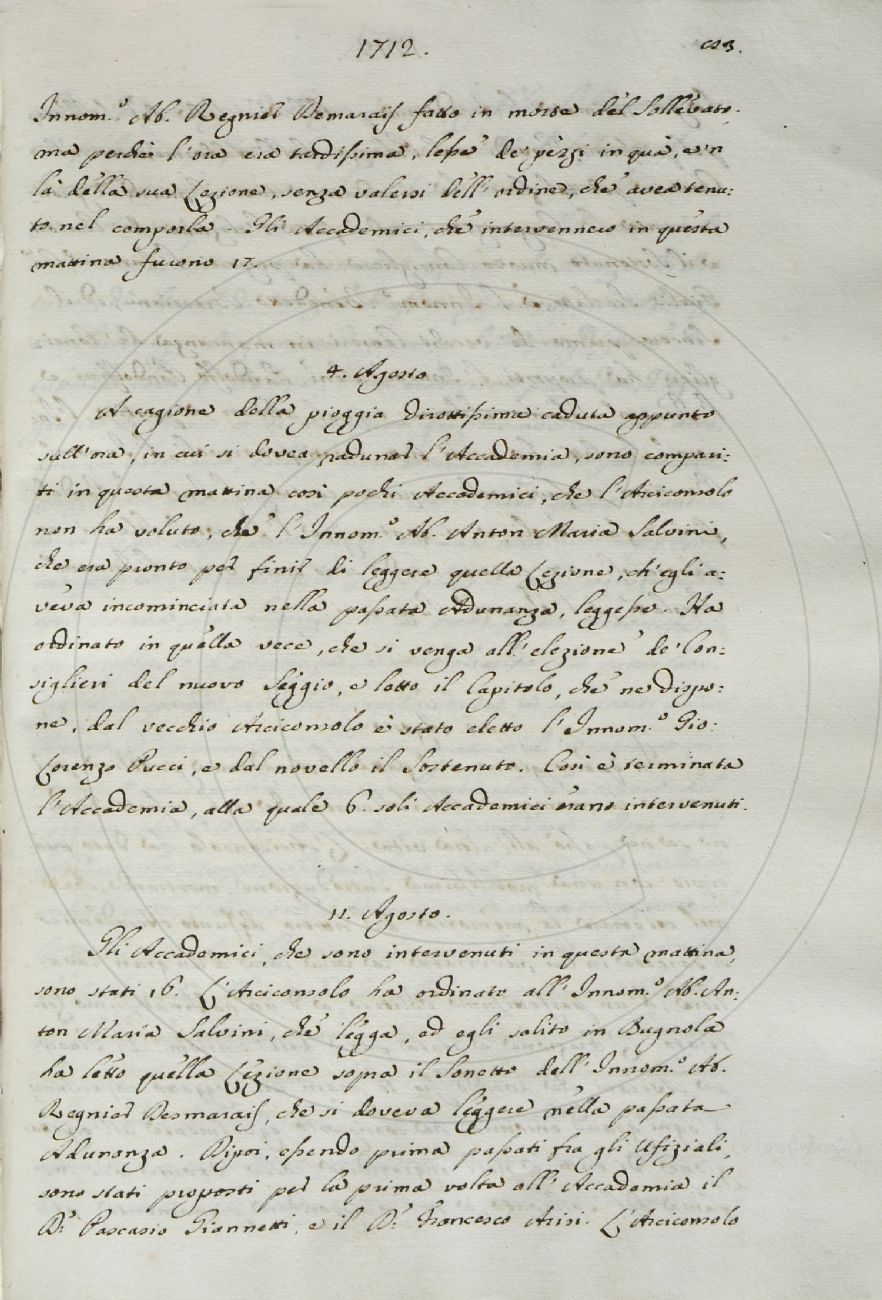 1712.
Innom.º Ab. Regnier Demarais fatto in morte del Sollevato.
ma perchè l'ora era tardissima, lesse de' pezzi in quà, e'n
là della sua Lezione, senza valersi dell'ordine, che avea tenu:
to nel comporla. Gli Accademici, che intervennero in questa
mattina furono 17.
4. Agosto
A cagione della pioggia dirottissima caduta appunto
sull'ora, in cui si dovea radunar l'Accademia, sono compari:
ti in questa mattina così pochi Accademici, che l'Arciconsolo
non ha voluto, che l'Innom.º Ab. Anton Maria Salvini,
che era pronto per finir di leggere quella Lezione, ch'egli a:
veva incominciata nella passata Adunanza, leggesse. Ha
ordinato in quella vece, che si venga all'elezione de' Con:
siglieri del nuovo Seggio, e letto il Capitolo, che ne dispo:
ne, dal vecchio Arciconsolo è stato eletto l'Innom.º Gio:
Lorenzo Pucci, e dal novello il Sostenuto. Così è terminata
l'Accademia, alla quale 6. soli Accademici erano intervenuti.
11. Agosto.
Gli Accademici, che sono intervenuti in questa mattina,
sono stati 16. L'Arciconsolo ha ordinato all'Innom.º Ab. An:
ton Maria Salvini, che legga, ed egli salito in Bugnola
ha letto quella Lezione sopra il Sonetto dell'Innom.º Ab.
Regnier Desmarais, che si doveva leggere nella passata
Adunanza. Dipoi, essendo prima passati fra gli Ufiziali,
sono stati proposti per la prima volta all'Accademia il
D.r Pascasio Giannetti, e il D.r Francesco Arisi. L'Arciconsolo